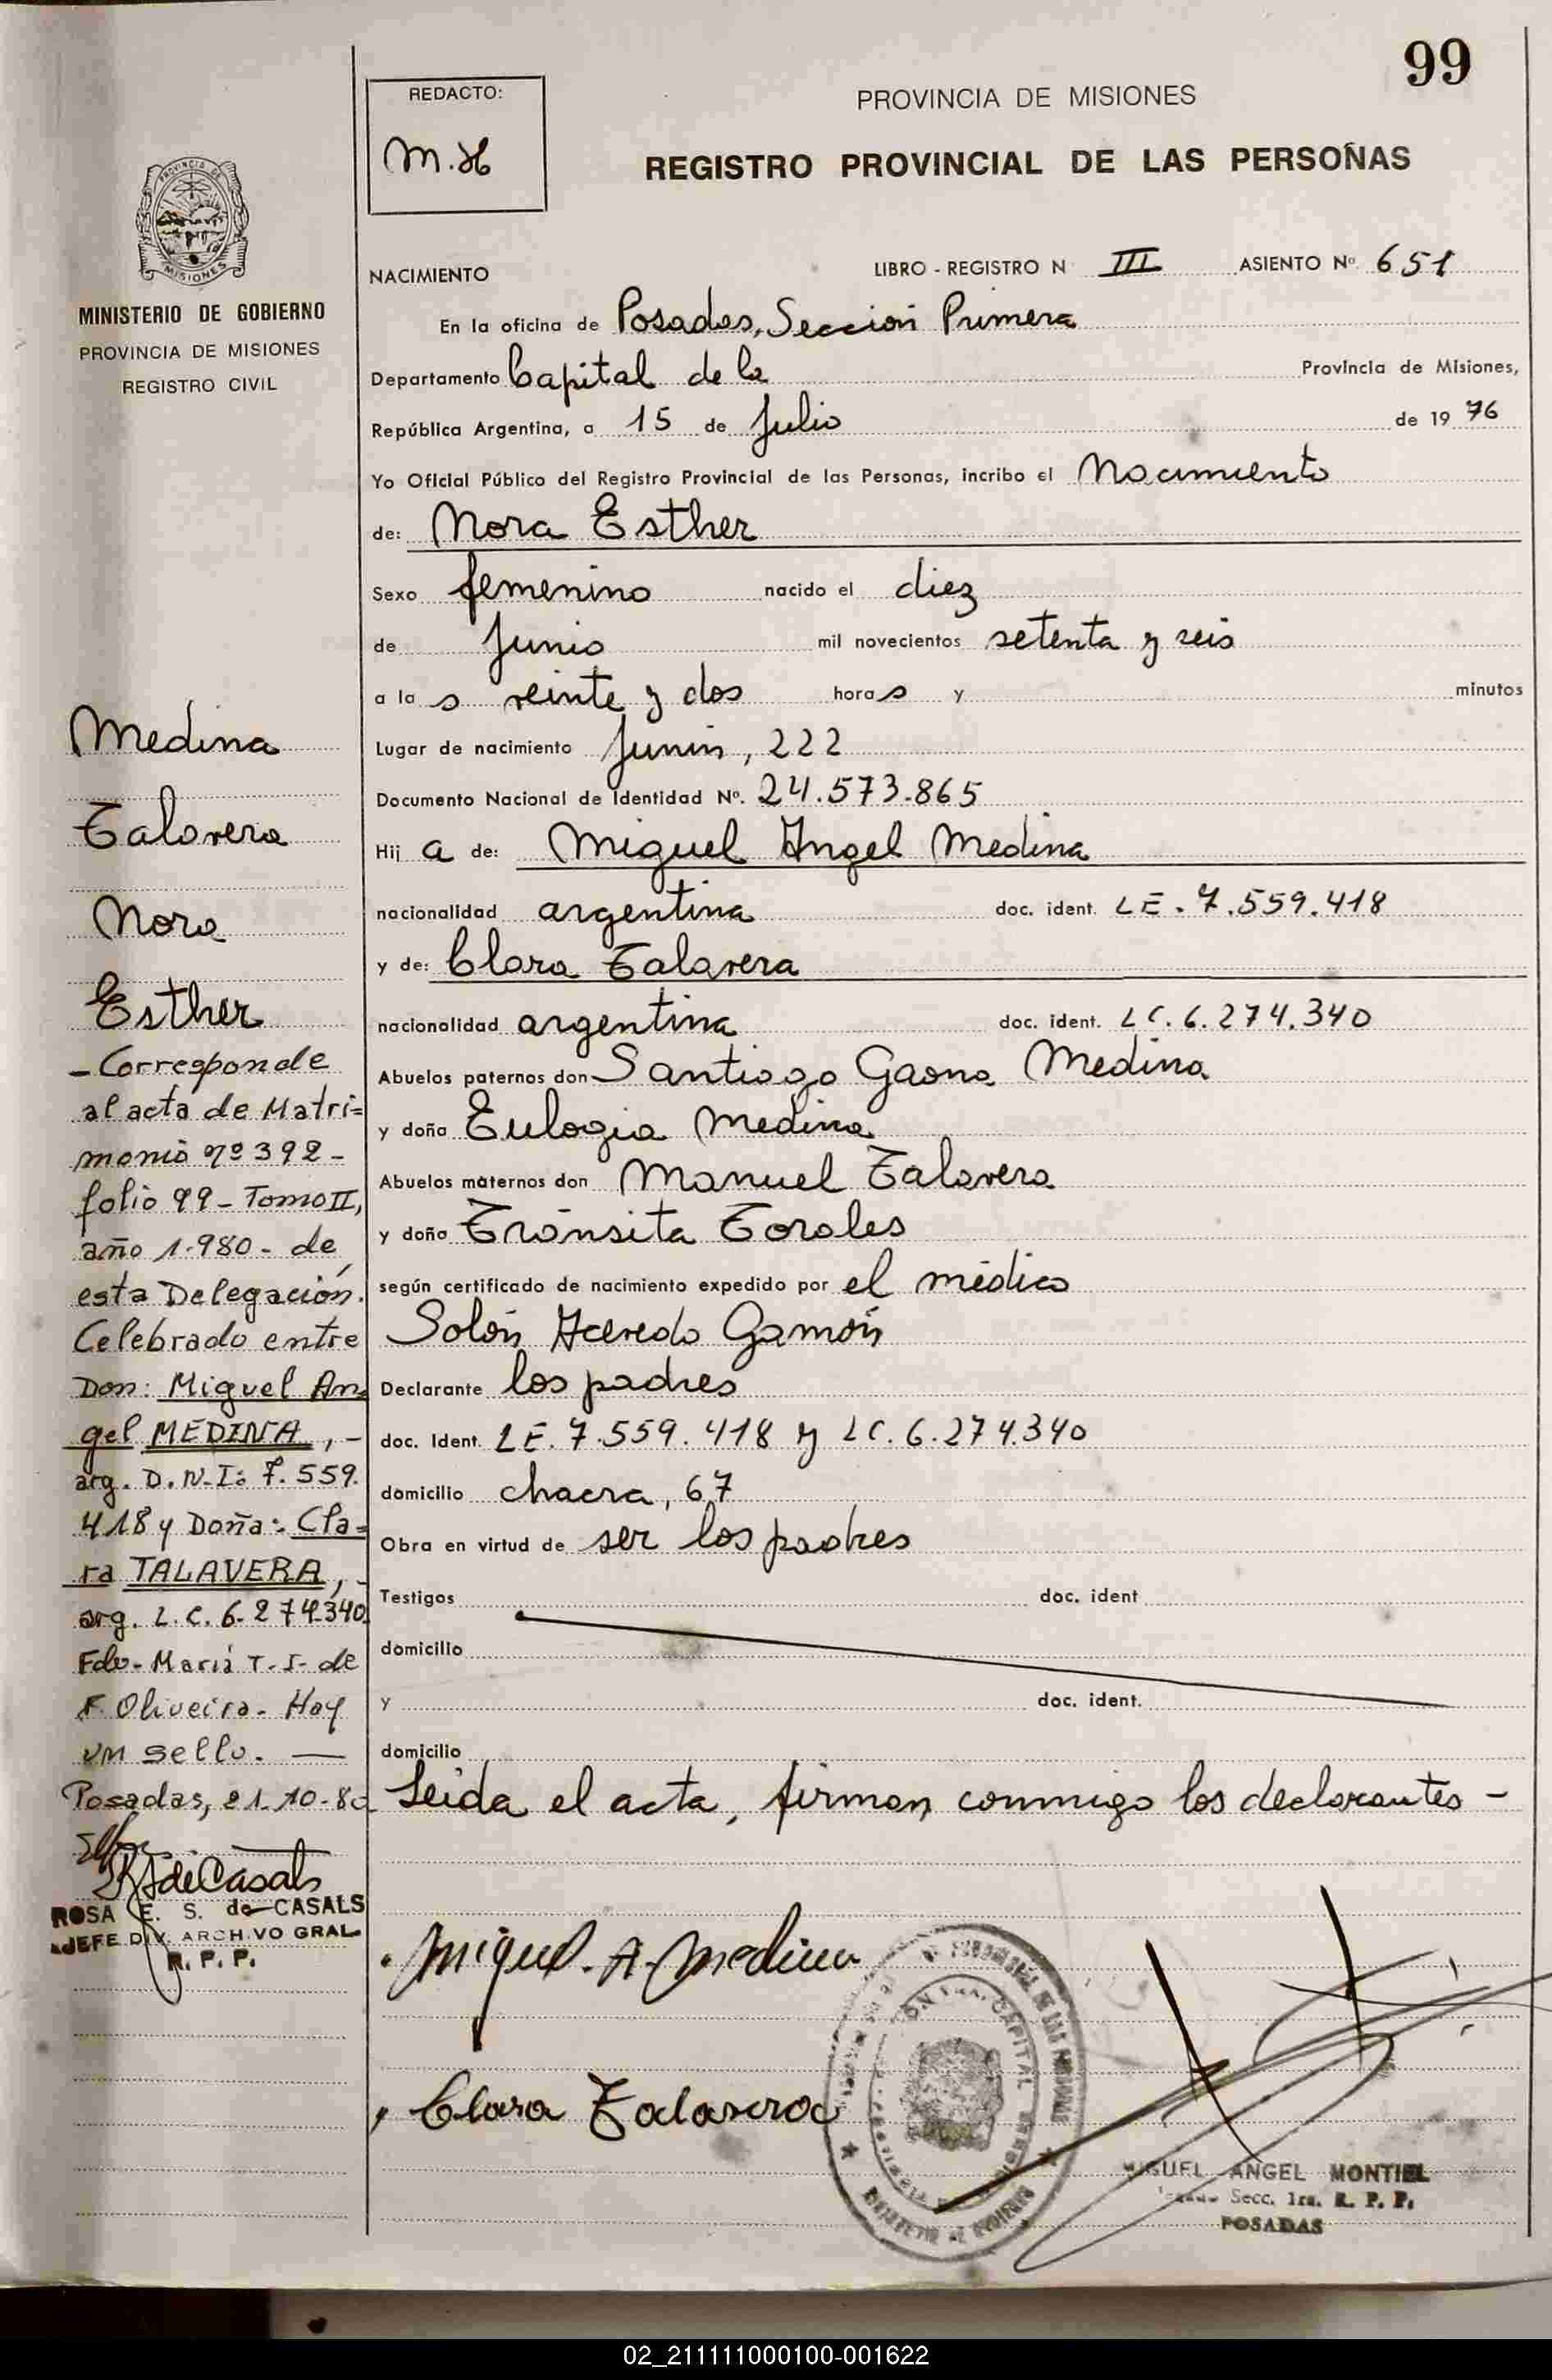 99
REDACTO:
M.H
PROVINCIA DE MISIONES
REGISTRO PROVINCIAL DE LAS PERSONAS
PROVINCIA DE
MISIONES
MINISTERIO DE GOBIERNO
PROVINCIA DE MISIONES
REGISTRO CIVIL
NACIMIENTO LIBRO - REGISTRO N III ASIENTO Nº 651
En la oficina de Posadas, Sección Primera
Departamento Capital de la Provincia de Misiones,
República Argentina, a 15 de Julio de 19 76
Yo Oficial Público del Registro Provincial de las Personas, incribo el Nacimiento
de: Nora Esther
Sexo femenino nacido el diez
de Junio mil novecientos setenta y seis
a la s veinte y dos hora s y minutos
Lugar de nacimiento Junín, 222
Documento Nacional de Identidad Nº. 24.573.865
Hij a de: Miguel Angel Medina
nacionalidad argentina doc. ident. LE. 7.559.418
y de: Clara Talavera
nacionalidad argentina doc. ident. LC. 6.274.340
Abuelos paternos don Santiago Gaona Medina
y doña Eulogia Medina
Abuelos maternos don Manuel Talavera
y doña Tránsita Torales
según certificado de nacimiento expedido por el médico
Solón Acevedo Gamón
Declarante los padres
doc. Ident. LE. 7.559.418 y LC. 6.274.340
domicilio chacra, 67
Obra en virtud de ser los padres
Testigos doc. ident
domicilio
y doc. ident.
domicilio
Leida el acta, firman conmigo los declarantes -
Medina
Talavera
Nora
Esther
- Corresponde
al acta de Matri=
monio nº 392 -
folio 99 - Tomo II,
año 1.980 - de
esta Delegación.
Celebrado entre
Don: Miguel An=
gel MEDINA, -
arg. D.N.I: 7.559.
418 y Doña: Cla=
ra TALAVERA, -
arg. L.C. 6.274.340
Fdo - María T. I. de
F. Oliveira - Hay
un sello. —
Posadas, 21-10-80
de Casals
ROSA E. S. de CASALS
JEFE DIV. ARCHIVO GRAL.
R. P. P.
Miguel. A. Medina
Clara Talavera
CAPITAL
MIGUEL ANGEL MONTIEL
Secc. 1ra. R. P. P.
POSADAS
02_211111000100-001622